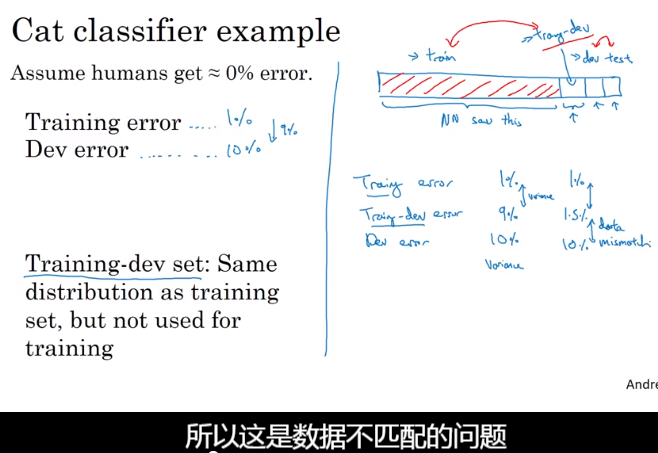 Cat classifier example
Assume humans get ≈ 0% error.
Training error ..... 1%
Dev error ........ 10%
↓ 9%
Training-dev set: Same
distribution as training
set, but not used for
training
→ train
→ dev test
NN saw this
error 1% 1%
variance
error 9% 1.5%
data
Dev error 10% 10% mismatch
Variance
Andre
所以这是数据不匹配的问题